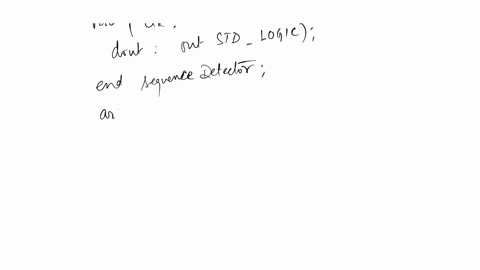 dout : out STD_LOGIC);
end sequence Detector;
ar